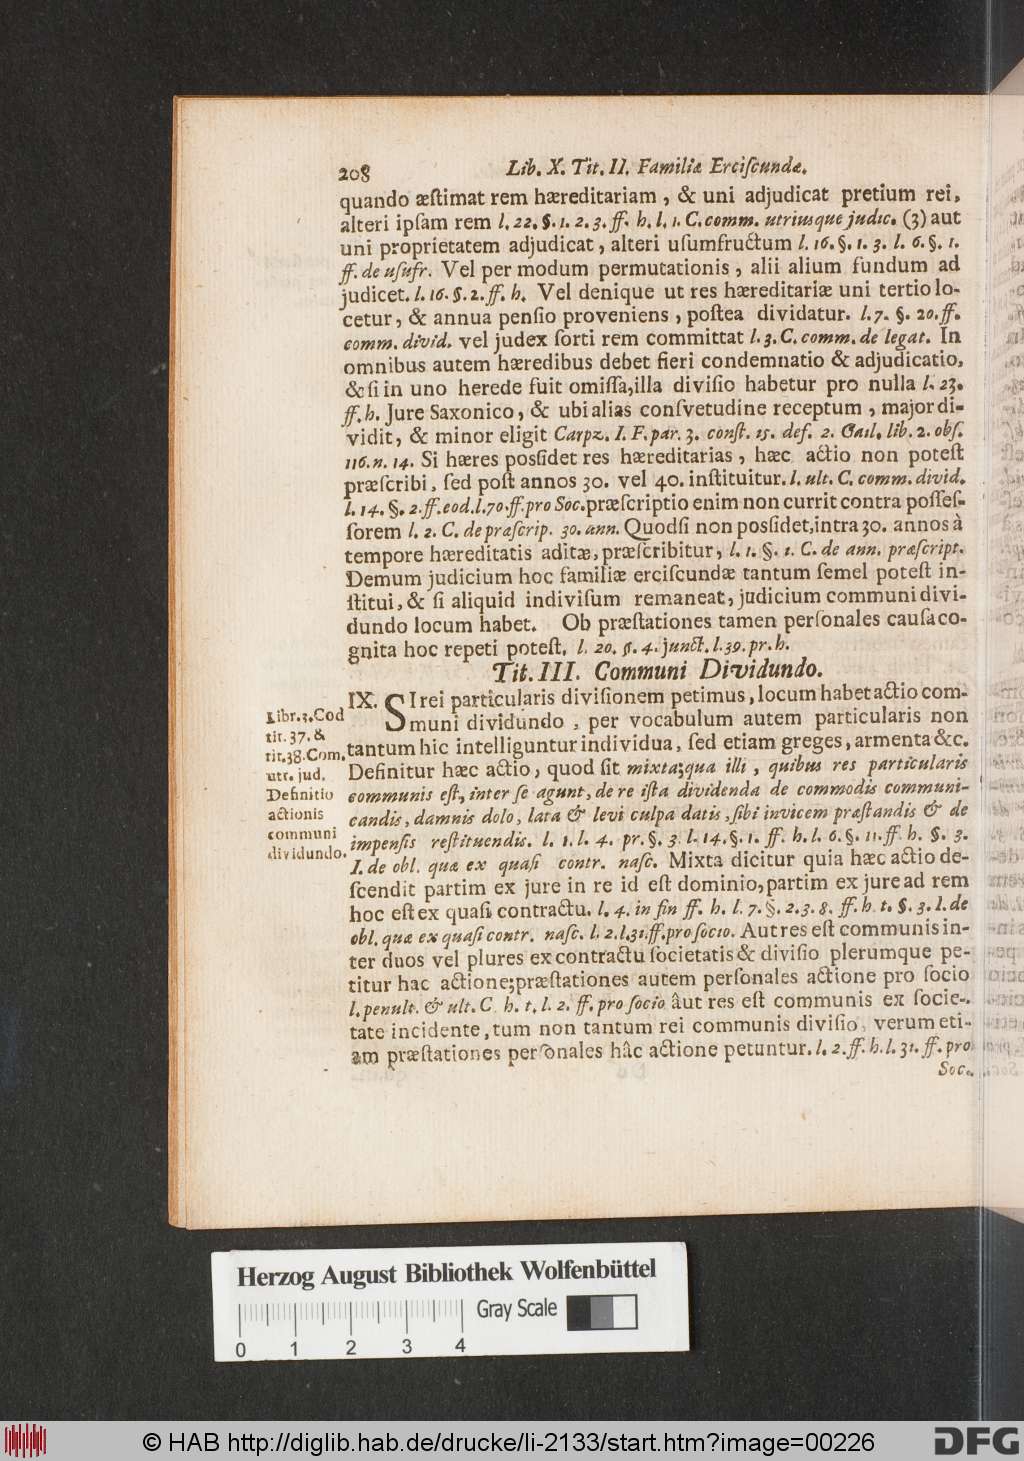 208 Lib. X. Tit. II. Familiæ Erciſcundæ.
quando æſtimat rem hæreditariam, & uni adjudicat pretium rei,
alteri ipſam rem l. 22. §. 1. 2. 3. ff. h. l. 1. C. comm. utriusque judic. (3) aut
uni proprietatem adjudicat, alteri uſumfructum l. 16. §. 1. 3. l. 6. §. 1.
ff. de uſufr. Vel per modum permutationis, alii alium fundum ad
judicet. l. 16. §. 2. ff. h. Vel denique ut res hæreditariæ uni tertio lo-
cetur, & annua penſio proveniens, poſtea dividatur. l. 7. §. 20. ff.
comm. divid. vel judex ſorti rem committat l. 3. C. comm. de legat. In
omnibus autem hæredibus debet fieri condemnatio & adjudicatio,
& ſi in uno herede fuit omiſſa, illa diviſio habetur pro nulla l. 23.
ff. h. Jure Saxonico, & ubi alias conſvetudine receptum, major di-
vidit, & minor eligit Carpz. I. F. par. 3. conſt. 15. def. 2. Gail. lib. 2. obſ.
116. n. 14. Si hæres possidet res hæreditarias, hæc actio non poteſt
præſcribi, ſed poſt annos 30. vel 40. inſtituitur. l. ult. C. comm. divid.
l. 14. §. 2. ff. eod. l. 70. ff. pro Soc. præſcriptio enim non currit contra poſſeſ-
ſorem l. 2. C. de præſcrip. 30. ann. Quodſi non poſsidet, intra 30. annos à
tempore hæreditatis aditæ, præſcribitur, l. 1. §. 1. C. de ann. præſcript.
Demum judicium hoc familiæ erciſcundæ tantum ſemel poteſt in-
ſtitui, & ſi aliquid indiviſum remaneat, judicium communi divi-
dundo locum habet. Ob præſtationes tamen perſonales cauſa co-
gnita hoc repeti poteſt. l. 20. §. 4. junct. l. 39. pr. h.
Tit. III. Communi Dividundo.
IX. SI rei particularis diviſionem petimus, locum habet actio com-
muni dividundo, per vocabulum autem particularis non
tantum hic intelliguntur individua, ſed etiam greges, armenta &c.
Definitur hæc actio, quod ſit mixta; qua illi, quibus res particularis
communis eſt, inter ſe agunt, de re iſta dividenda de commodis communi-
candis, damnis dolo, lata & levi culpa datis, ſibi invicem præſtandis & de
impenſis reſtituendis. l. 1. l. 4. pr. §. 3. l. 14. §. 1. ff. h. l. 6. §. 11. ff. h. §. 3.
I. de obl. quæ ex quaſi contr. naſc. Mixta dicitur quia hæc actio de-
ſcendit partim ex jure in re id eſt dominio, partim ex jure ad rem
hoc eſt ex quaſi contractu. l. 4. in fin ff. h. l. 7. §. 2. 3. 8. ff. h. t. §. 3. I. de
obl. quæ ex quaſi contr. naſc. l. 2. l. 31. ff. pro ſocio. Aut res eſt communis in-
ter duos vel plures ex contractu ſocietatis & diviſio plerumque pe-
titur hac actione; præſtationes autem perſonales actione pro ſocio
l. penult. & ult. C. h. t. l. 2. ff. pro ſocio âut res eſt communis ex ſocie-
tate incidente, tum non tantum rei communis diviſio, verum eti-
am præſtationes perſonales hâc actione petuntur. l. 2. ff. h. l. 31. ff. pro
Soc.
Libr. 3. Cod
tit. 37. &
tit. 38. Com.
utr. jud.
Definitio
actionis
communi
dividundo.
Herzog August Bibliothek Wolfenbüttel
Gray Scale
0 1 2 3 4
© HAB http://diglib.hab.de/drucke/li-2133/start.htm?image=00226
DFG